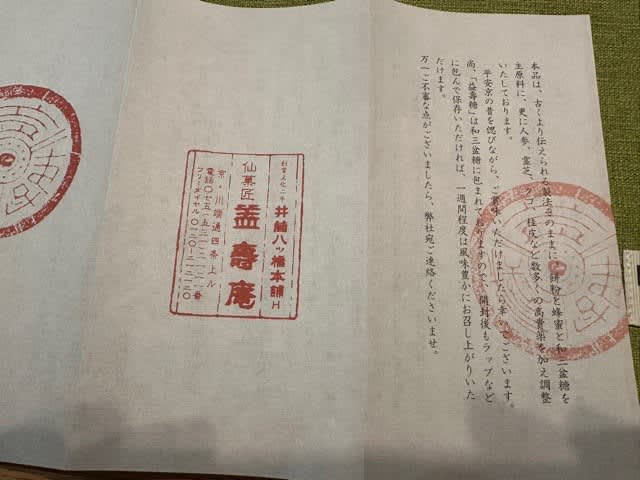 本品は、古くより伝えられる製法そのままに、餅粉と蜂蜜と和三盆糖を
主原料に、更に人参、霊芝、クコ、桂皮など数多くの高貴薬を加え調整
いたしております。
平安京の昔を偲びながら、ご賞味いただけましたら幸いでございます。
尚、「益壽糖」は和三盆糖に包まれておりますので、開封後もラップなど
に包んで保存いただければ、一週間程度は風味豊かにお召し上がりいた
だけます。
万一ご不審な点がございましたら、弊社宛ご連絡くださいませ。
創業文化二年 井筒八ッ橋本舗
仙菓匠 益壽庵
京・川端通四条上ル
電話〇七五-五三一-二一二一番
フリーダイヤル〇一二〇-二一二一二〇